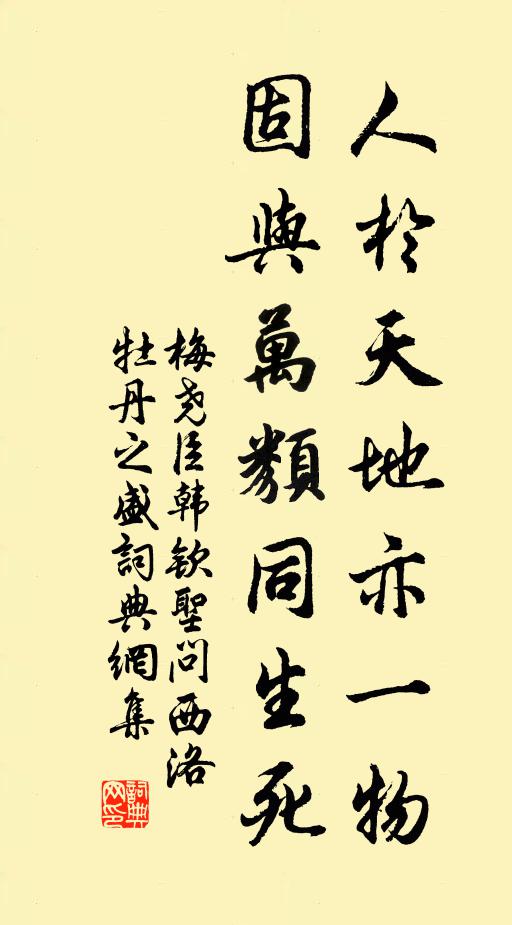 人於天地亦一物
固與萬類同生死
梅尧臣韩钦聖问西洛
牡丹之盛詞典網集
詞典
网印